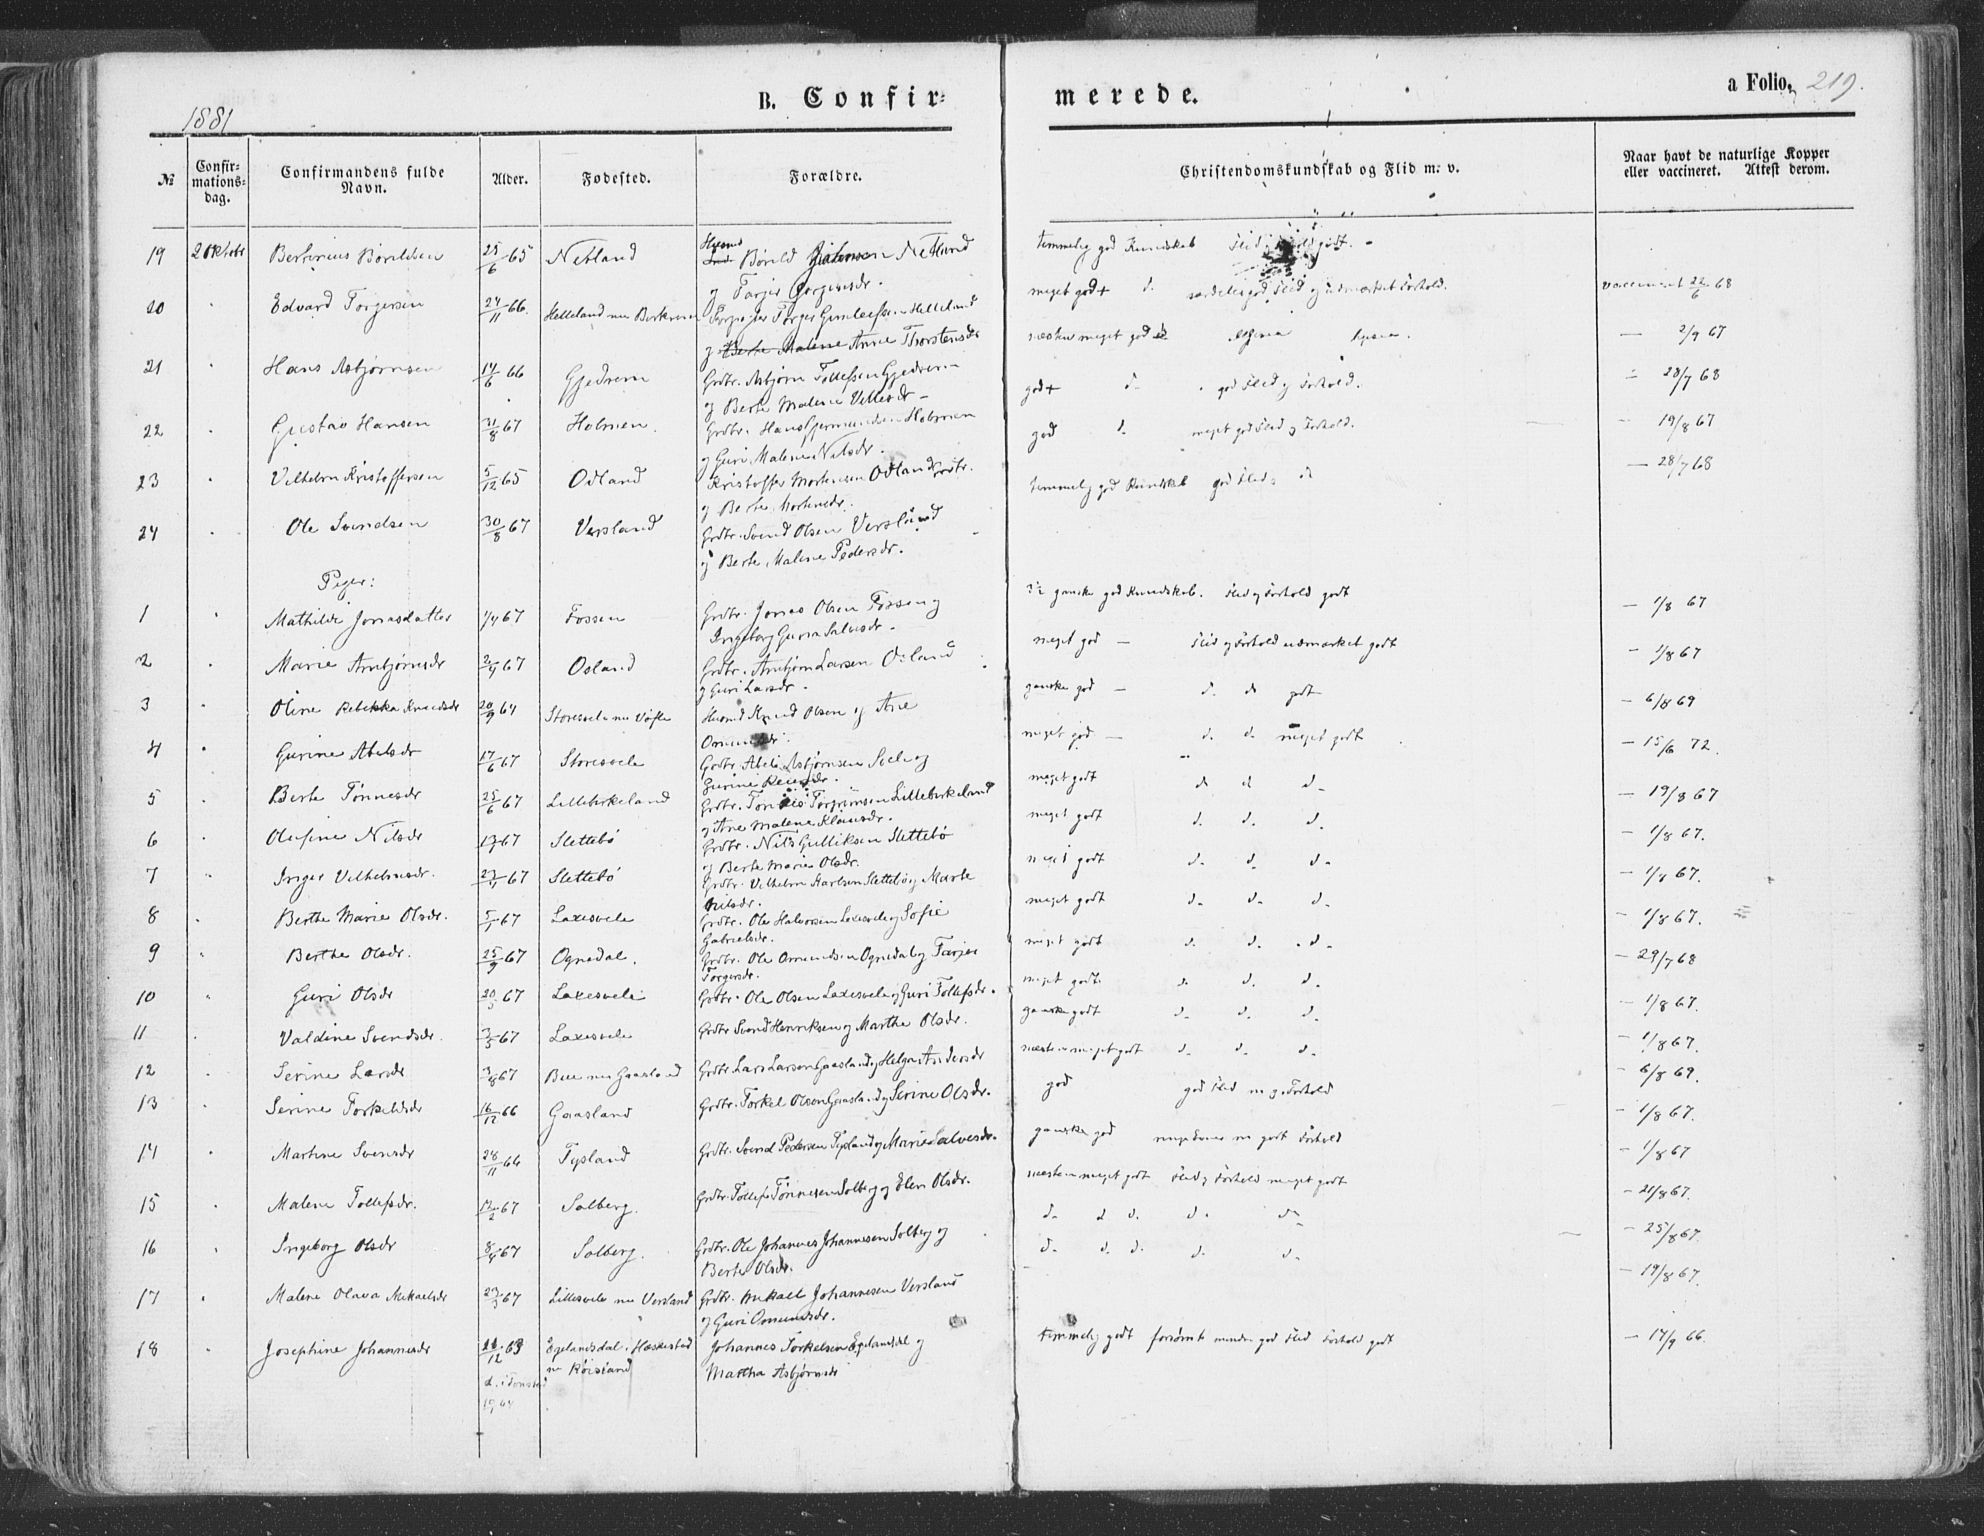 1881
B. Confir=
merede.
a Folio, 219.
№
Confir=
mations=
dag.
Confirmandens fulde
Navn.
Alder.
Fødested.
Forældre.
Christendomskundskab og Flid m. v.
Naar havt de naturlige Kopper
eller vaccineret. Attest derom.
19 2 Oktobr Bertinius Børildsen 25/6 65 Netland Børild Netland temmelig god Kundskab
og Tarjer
20 " Edvard Torgersen 24/11 66 Helleland nu Birkrem Torger Gunleifsen Helleland meget god + d. særdeles god Flid og udmærket Forhold. vaccineret 22/6 68
og Berte Malene Anne Thorstensdr
21 " Hans Asbjørnsen 14/6 66 Gjedrem Grdbr. Asbjørn Tollefsen Gjedrem næsten meget god — 2/9 67
og Berte Malene
22 " Gustav Hansen 31/8 67 Holmen Grdbr. Hans Holmen god + d. god Flid og Forhold. — 28/7 68
og Guri Malene Nilsdr.
23 " Vilhelm Kristoffersen 5/12 65 Odland Kristoffer Mortensen Odland god d. meget god Flid og Forhold. — 19/8 67
og Berte
24 " Ole Svendsen 30/8 67 Versland Grdbr. Svend Olsen Versland temmelig god Kundskab god Flid — 28/7 68
og Berte Malene Pedersdr.
Piger:
1 " Mathilde Jonasdatter 1/4 67 Fossen Grdbr. Jonas Olsen Fossen og ganske god Kundskab. Flid og Forhold godt — 1/8 67
Ingeborg Guria Salvesdr.
2 " Marie Arnbjørnsdr 2/4 67 Osland Grdbr. Arnbjørn Larsen Osland meget god — Flid og Forhold udmærket godt — 1/8 67
og Guri Larsdr.
3 " Oline Rebekka Knudsdr 20/9 64 Storesvele nu Husmd Knud Olsen og Ane ganske god — d. d. godt — 6/8 69
4 " Gurine Abelsdr 17/6 67 Storesvele Grdbr. Abel Asbjørnsen Svele og meget god — d. d. meget godt — 15/6 72.
Gurine
5 " Berte Tønnesdr 25/6 67 Lillebirkeland Grdbr. Tønnes Lillebirkeland meget godt d d d. — 19/8 67
og Ane Malene
6 " Olufine Nilsdr Slettebø Grdbr. Nils Gulliksen Slettebø meget godt d. d. d. — 1/8 67.
og Berte Marie Olsdr.
7 " Inger Vilhelmsdr. Slettebø Grdbr. Vilhelm Karlsen Slettebø og Marte meget godt d. d. d. 67.
Nilsdr.
8 " Berthe Marie Olsdr. Laxesvele Grdbr. Ole Halvorsen Laxesvele og Sofie meget godt d. d. d. — 1/8 67.
Gabrielsdr.
9 " Berthe Olsdr. 25/9 67 Ognedal. Grdbr. Ole Omundsen Ognedal og Tarjer meget godt d. d. d. — 29/7 68
Torgersdr.
10 " Guri Olsdr 67 Laxesvele Grdbr. Ole Olsen Laxesvele og Guri Tollefsdr. meget godt. d. d. d. — 1/8 67.
11 " Valdine Svendsdr. 3/5 67 Laxesvele Grdbr Svend Henriksen og Marthe Olsdr. ganske godt d. d. d. — 1/8 67.
12 " Serine Larsdr 67 Bue nu Gaasland Grdbr Lars Larsen Gaasland og Helga Andersdr næsten meget godt d. d. d. — 6/8 69.
13 " Serine Torkeldsdr 16/12 66 Gaasland Grdbr. Torkel Olsen Gaasland og Serine Olsdr. god god Flid og Forhold — 1/8 67.
14 " Martine Svendsdr 28/11 66 Tysland Grdbr. Svend Pedersen Tysland og Marie Salvesdr. ganske god godt Forhold — 1/8 67
15 " Malene Tollefsdr. 12/2 67 Solberg. Grdbr. Tollef Tønnesen Solberg og Elen Olsdr. næsten meget godt Flid og Forhold meget godt — 21/8 67.
16 " Ingeborg Olsdr 67 Solberg. Grdbr. Ole Johannes Johannesen Solberg og d. d d. d. d. — 25/8 67.
Berte Olsdr.
17 " Malene Olava Mikaelsdr 67 Lillesvele nu Versland Grdbr. Mikael Johannesen Versland d. d. d. d. d. — 19/8 67.
og Guri Omundsdr.
18 " Josephine Johannesdr Egelandsdal i Heskestad Johannes Torkelsen Egelandsdal og temmelig godt forsømt mindre god Flid Forhold godt — 17/9 66.
nu Martha Asbjørnsdr